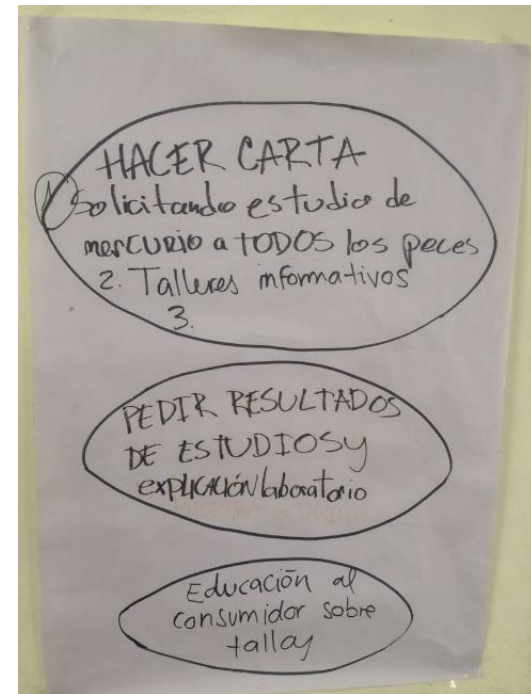 HACER CARTA
1 Solicitando estudio de
merCURIO a TODOS los peces
2. Talleres informativos
3.
PEDIR RESULTADOS
DE ESTUDIOS y
explicación laboratorio
Educación al
consumidor sobre
tallas